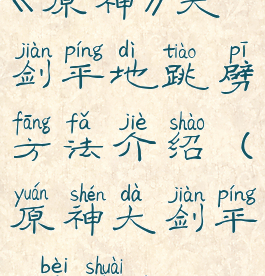 《原神》大
jiàn píng dì tiào pī
剑平地跳劈
fāng fǎ jiè shào
方法介绍（
yuán shén dà jiàn píng
原神大剑平
bèi shuài